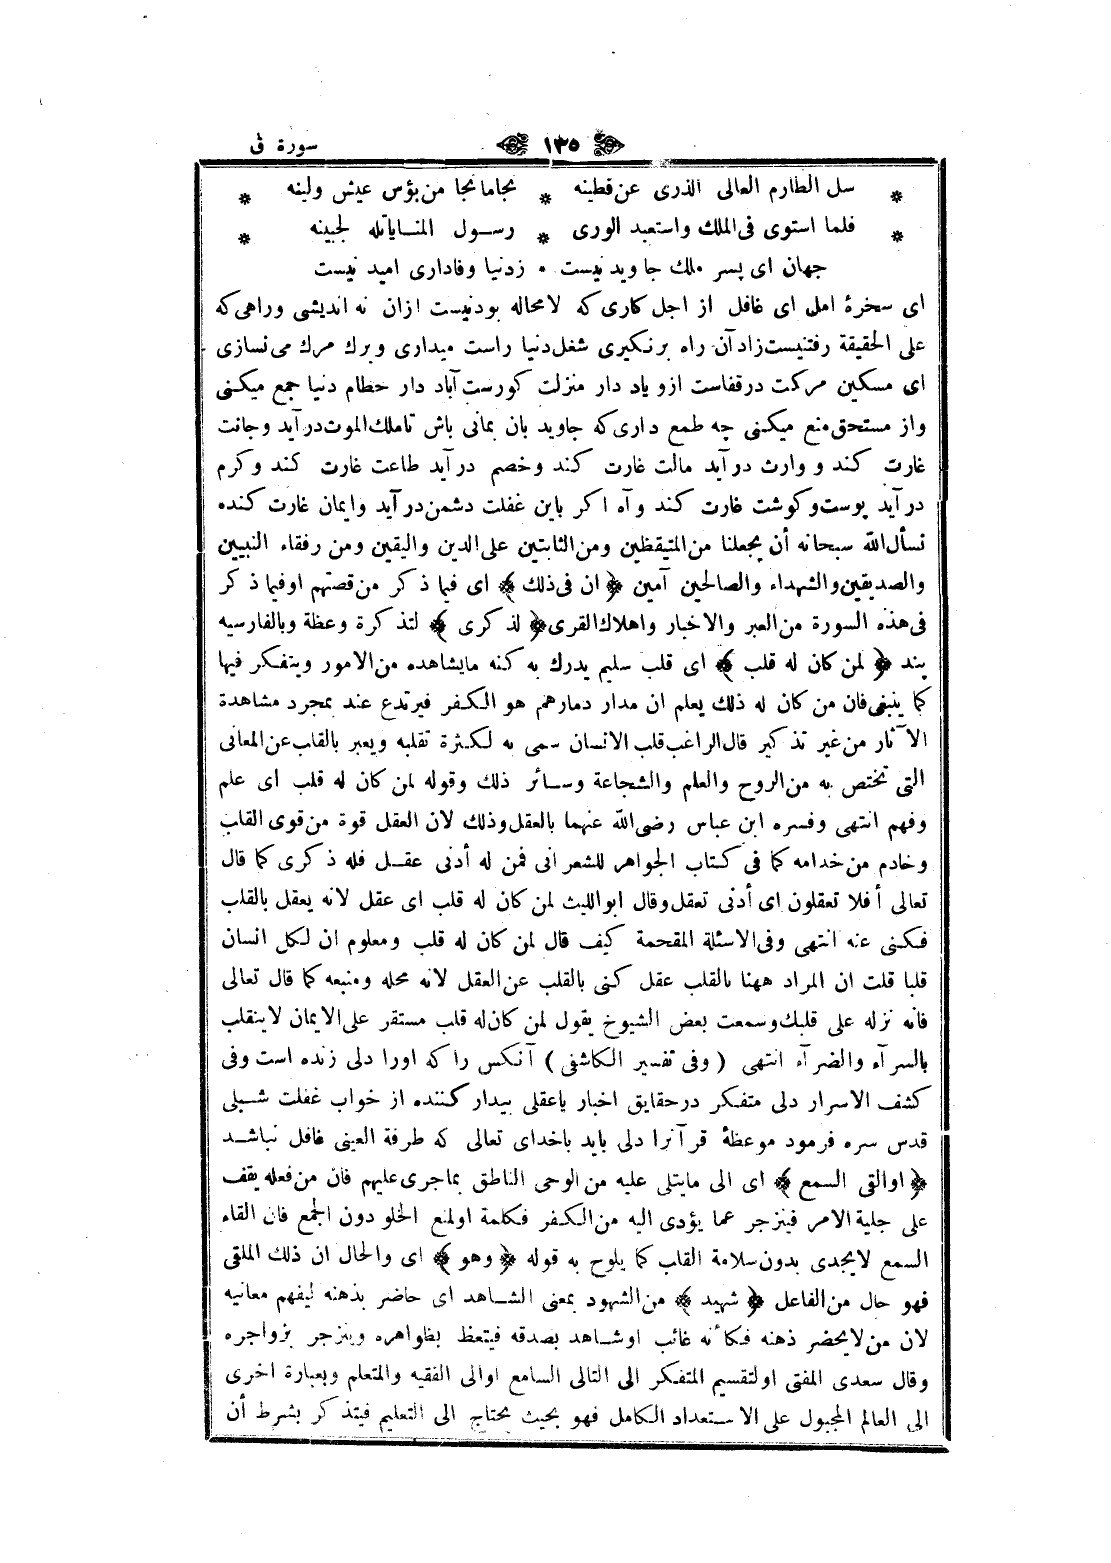 سورة ق ١٣٥
* سل الطارم العالى الذرى عن قطينه * نجاما نجا من بؤس عيش ولينه *
* فلما استوى فى الملك واستعبد الورى * رسول المنايا تله لجبينه *
جهان اى پسر ملك جاويد نيست . زدنيا وفادارى اميد نيست
اى سخرۀ امل اى غافل از اجل كارى كه لا محاله بودنيست ازان نه انديشى وراهى كه
على الحقيقة رفتنيست زاد آن راه برنكيرى شغل دنيا راست ميدارى وبرك مرك مى نسازى
اى مسكين مركت درقفاست ازو ياد دار منزلت كورست آباد دار حطام دنيا جمع ميكنى
واز مستحق منع ميكنى چه طمع دارى كه جاويد بان بمانى باش تا ملك الموت در آيد وجانت
غارت كند و وارث در آيد مالت غارت كند وخصم در آيد طاعت غارت كند وكرم
در آيد پوست وكوشت غارت كند وآه اكر باين غفلت دشمن در آيد وايمان غارت كنده
نسأل الله سبحانه أن يجعلنا من المتيقظين ومن الثابتين على الدين واليقين ومن رفقاء النبيين
والصديقين والشهداء والصالحين آمين ﴿ ان فى ذلك ﴾ اى فيما ذكر من قصتهم اوفيما ذكر
فى هذه السورة من العبر والاخبار واهلاك القرى ﴿ لذكرى ﴾ لتذكرة وعظة وبالفارسيه
پند ﴿ لمن كان له قلب ﴾ اى قلب سليم يدرك به كنه مايشاهده من الامور ويتفكر فيها
كما ينبغى فان من كان له ذلك يعلم ان مدار دمارهم هو الكفر فيرتدع عند بمجرد مشاهدة
الآثار من غير تذكير قال الراغب قلب الانسان سمى به لكثرة تقلبه ويعبر بالقلب عن المعانى
التى تختص به من الروح والعلم والشجاعة وسائر ذلك وقوله لمن كان له قلب اى علم
وفهم انتهى وفسره ابن عباس رضى الله عنهما بالعقل وذلك لان العقل قوة من قوى القلب
وخادم من خدامه كما فى كتاب الجواهر للشعرانى فمن له أدنى عقل فله ذكرى كما قال
تعالى أفلا تعقلون اى أدنى تعقل وقال ابو الليث لمن كان له قلب اى عقل لانه يعقل بالقلب
فكنى عنه انتهى وفى الاسئلة المقحمة كيف قال لمن كان له قلب ومعلوم ان لكل انسان
قلبا قلت ان المراد ههنا بالقلب عقل كنى بالقلب عن العقل لانه محله ومنبعه كما قال تعالى
فانه نزله على قلبك وسمعت بعض الشيوخ يقول لمن كان له قلب مستقر على الايمان لاينقلب
بالسرآء والضرآء انتهى ( وفى تفسير الكاشفى ) آنكس را كه اورا دلى زنده است وفى
كشف الاسرار دلى متفكر درحقايق اخبار ياعقلى بيدار كننده از خواب غفلت شبلى
قدس سره فرمود موعظۀ قرآنرا دلى بايد باخداى تعالى كه طرفة العينى غافل نباشد
﴿ اوالقى السمع ﴾ اى الى مايتلى عليه من الوحى الناطق بماجرى عليهم فان من فعله يقف
على جلية الامر فينزجر عما يؤدى اليه من الكفر فكلمة اولمنع الخلو دون الجمع فان القاء
السمع لايجدى بدون سلامة القلب كما يلوح به قوله ﴿ وهو ﴾ اى والحال ان ذلك الملقى
فهو حال من الفاعل ﴿ شهيد ﴾ من الشهود بمعنى الشاهد اى حاضر بذهنه ليفهم معانيه
لان من لايحضر ذهنه فكأنه غائب اوشاهد بصدقه فيتعظ بظواهره وينزجر بزواجره
وقال سعدى المفتى اولتقسيم المتفكر الى التالى السامع اوالى الفقيه والمتعلم وبعبارة اخرى
الى العالم المجبول على الاستعداد الكامل فهو بحيث يحتاج الى التعليم فيتذكر بشرط أن